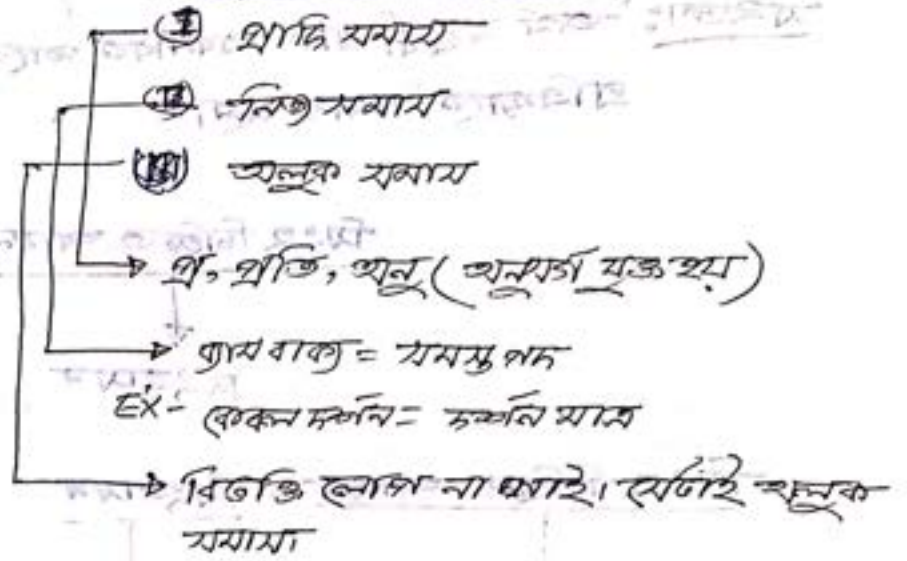 (I) প্রাদি সমাস
(II) নিত্য সমাস
(III) অলুক সমাস
প্র, প্রতি, অনু (অনুসর্গ যুক্ত হয়)
ব্যাস বাক্য = সমস্ত পদ
EX- কেবল দর্শন = দর্শন মাত্র
বিভক্তি লোপ না পাই। সেটাই অলুক
সমাস।